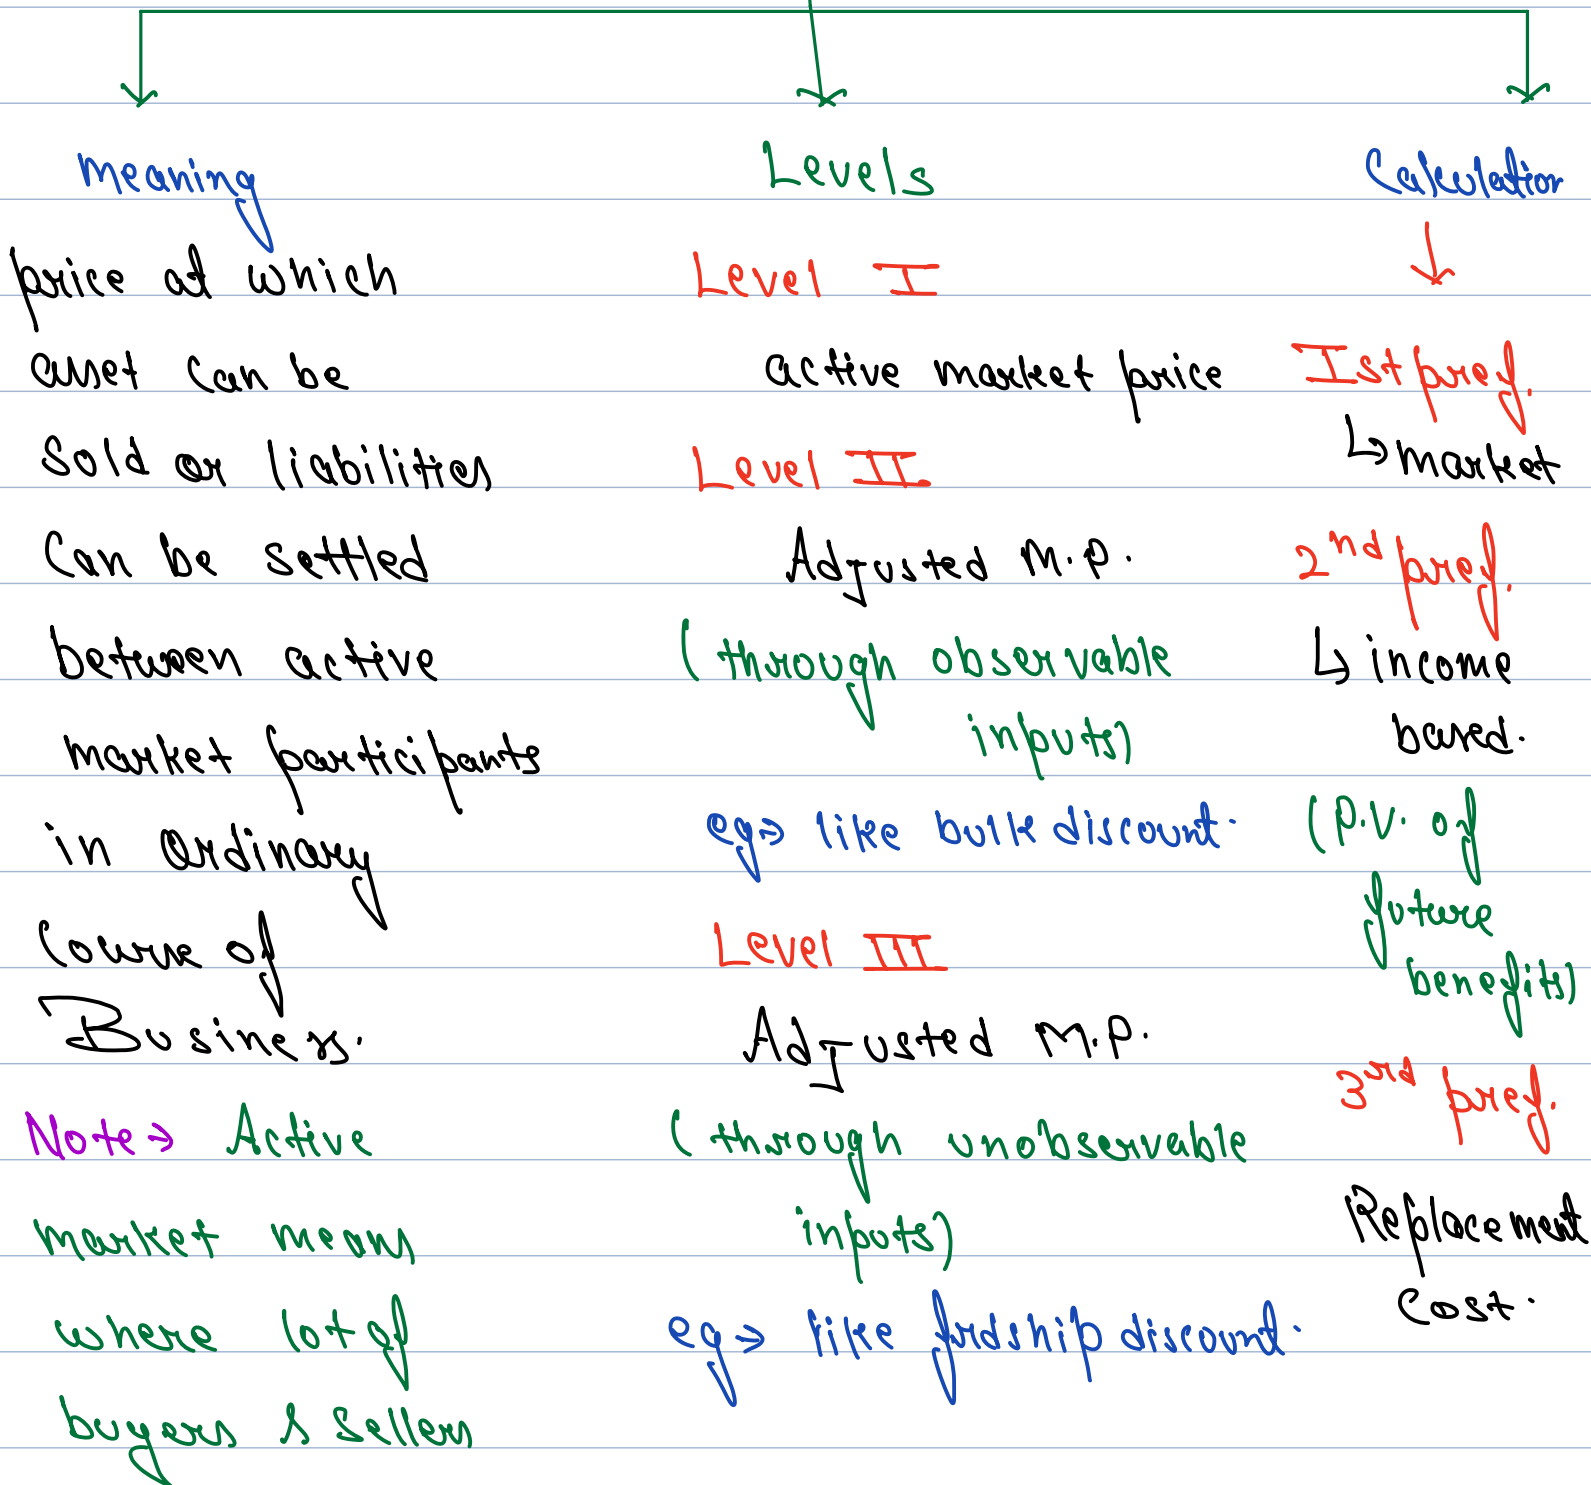 meaning
price at which
asset can be
sold or liabilities
can be settled
between active
market participants
in ordinary
course of
Business.
Note → Active
market means
where lot of
buyers & sellers
Levels
Level I
active market price
Level II
Adjusted M.P.
(through observable
inputs)
eg → like bulk discount.
Level III
Adjusted M.P.
(through unobservable
inputs)
eg → like frdship discount.
Calculation
↓
Ist pref.
↳ market
2nd pref.
↳ income
based.
(P.V. of
future
benefits)
3rd pref.
Replacement
Cost.